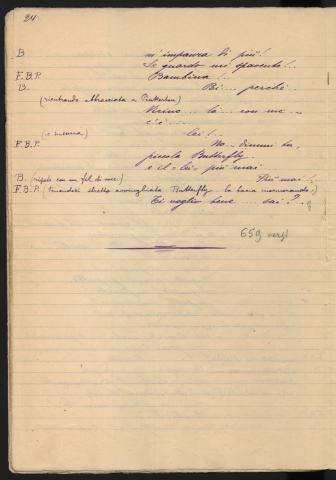 24
B mi impaura di più!
Se guardo mi spavento!..
F.B.P. Bambina!..
B. Bi... perchè..
(rientrando abbracciata a Pinkerton)
Vicino... là... con me...
c'è...
(e accenna) lei!..
F.B.P. No.. dimmi tu,
piccola Butterfly
e il.. lei.. più mai
B. (ripete con un fil di voce.) Più mai!..
F.B.P. (tenendosi stretta avvinghiata Butterfly la bacia mormorando.)
Ti voglio bene.... sai?..
659 versi